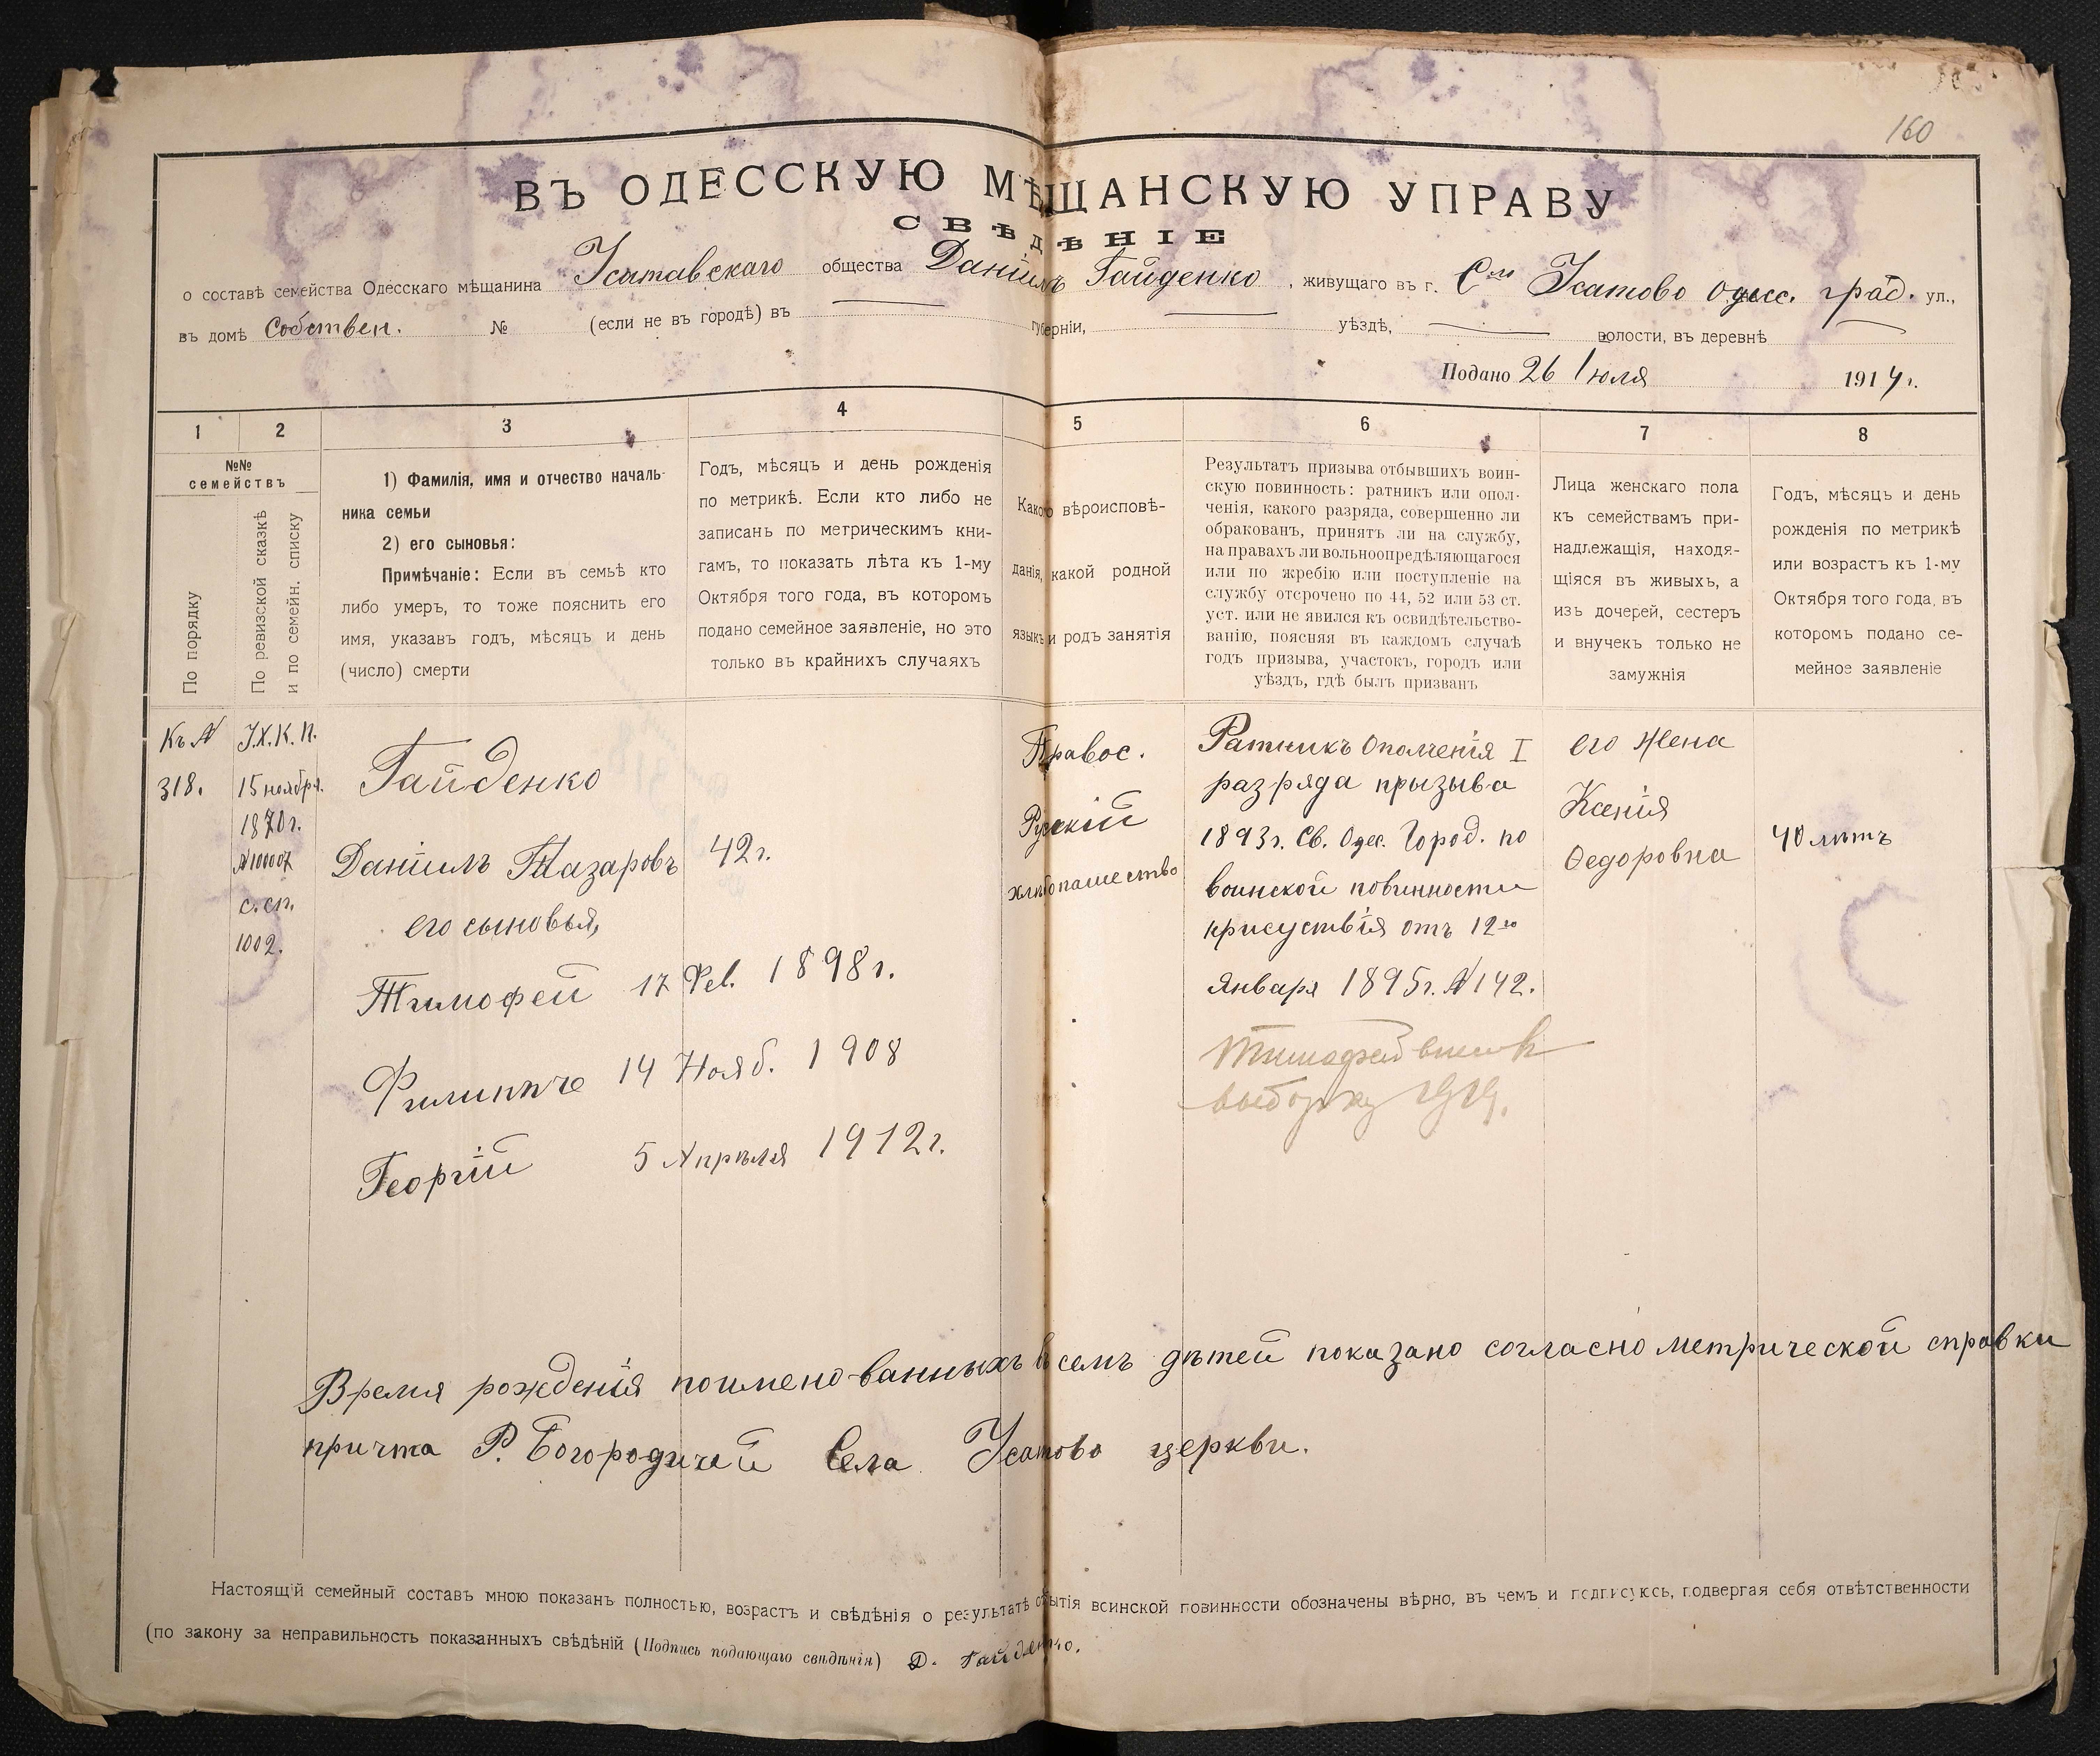 160
ВЪ ОДЕССКУЮ МѢЩАНСКУЮ УПРАВУ
СВѢДѢНІЕ
о составѣ семейства Одесскаго мѣщанина Усатавскаго общества Даніилъ Гайденко, живущаго въ г. Сло Усатово Одесс. град. ул.,
въ домѣ Собствен. № (если не въ городѣ) въ губерніи, уѣздѣ, волости, въ деревнѣ
Подано 26 Іюля 1914 г.
1 2 3 4 5 6 7 8
№№ семействъ
По порядку
По ревизской сказкѣ
и по семейн. списку
1) Фамилія, имя и отчество началь-
ника семьи
2) его сыновья:
Примѣчаніе: Если въ семьѣ кто
либо умеръ, то тоже пояснить его
имя, указавъ годъ, мѣсяцъ и день
(число) смерти
Годъ, мѣсяцъ и день рожденія
по метрикѣ. Если кто либо не
записанъ по метрическимъ кни-
гамъ, то показать лѣта къ 1-му
Октября того года, въ которомъ
подано семейное заявленіе, но это
только въ крайнихъ случаяхъ
Какого вѣроисповѣ-
данія, какой родной
языкъ и родъ занятія
Результатъ призыва отбывшихъ воин-
скую повинность: ратникъ или опол-
ченія, какого разряда, совершенно ли
обракованъ, принятъ ли на службу,
на правахъ ли вольноопредѣляющагося
или по жребію или поступленіе на
службу отсрочено по 44, 52 или 53 ст.
уст. или не явился къ освидѣтельство-
ванію, поясняя въ каждомъ случаѣ
годъ призыва, участокъ, городъ или
уѣздъ, гдѣ былъ призванъ
Лица женскаго пола
къ семействамъ при-
надлежащія, находя-
щіяся въ живыхъ, а
изъ дочерей, сестеръ
и внучекъ только не
замужнія
Годъ, мѣсяцъ и день
рожденія по метрикѣ
или возрастъ къ 1-му
Октября того года, въ
которомъ подано се-
мейное заявленіе
Къ №
318.
У.Х.К.П.
15 ноября.
1870 г.
№ 100007
с. сп.
1002.
Гайденко
Даніилъ Назаровъ 42 г.
его сыновья,
Тимофей 17 Фев. 1898 г.
Филиппъ 14 Нояб. 1908
Георгій 5 Апрѣля 1912 г.
Правос.
Русскій
хлѣбопашество
Ратникъ Ополченія I
разряда прызыва
1893 г. Св. Одес. Город. по
воинской повинности
присуствія отъ 12го
Января 1895 г. № 142.
Тимофей внесен в
выборку 1919.
его жена
Ксенія
Федоровна
40 лѣтъ
Время рожденія поименованныхъ всемъ дѣтей показано согласно метрической справки
причта Р. Богородичей Села Усатово церкви.
Настоящій семейный составъ мною показанъ полностью, возрастъ и свѣдѣнія о результатѣ отбытія воинской повинности обозначены вѣрно, въ чемъ и подписуюсь, подвергая себя отвѣтственности
(по закону за неправильность показанныхъ свѣдѣній (Подпись подающаго свѣдѣнія) Д. Гайденко.